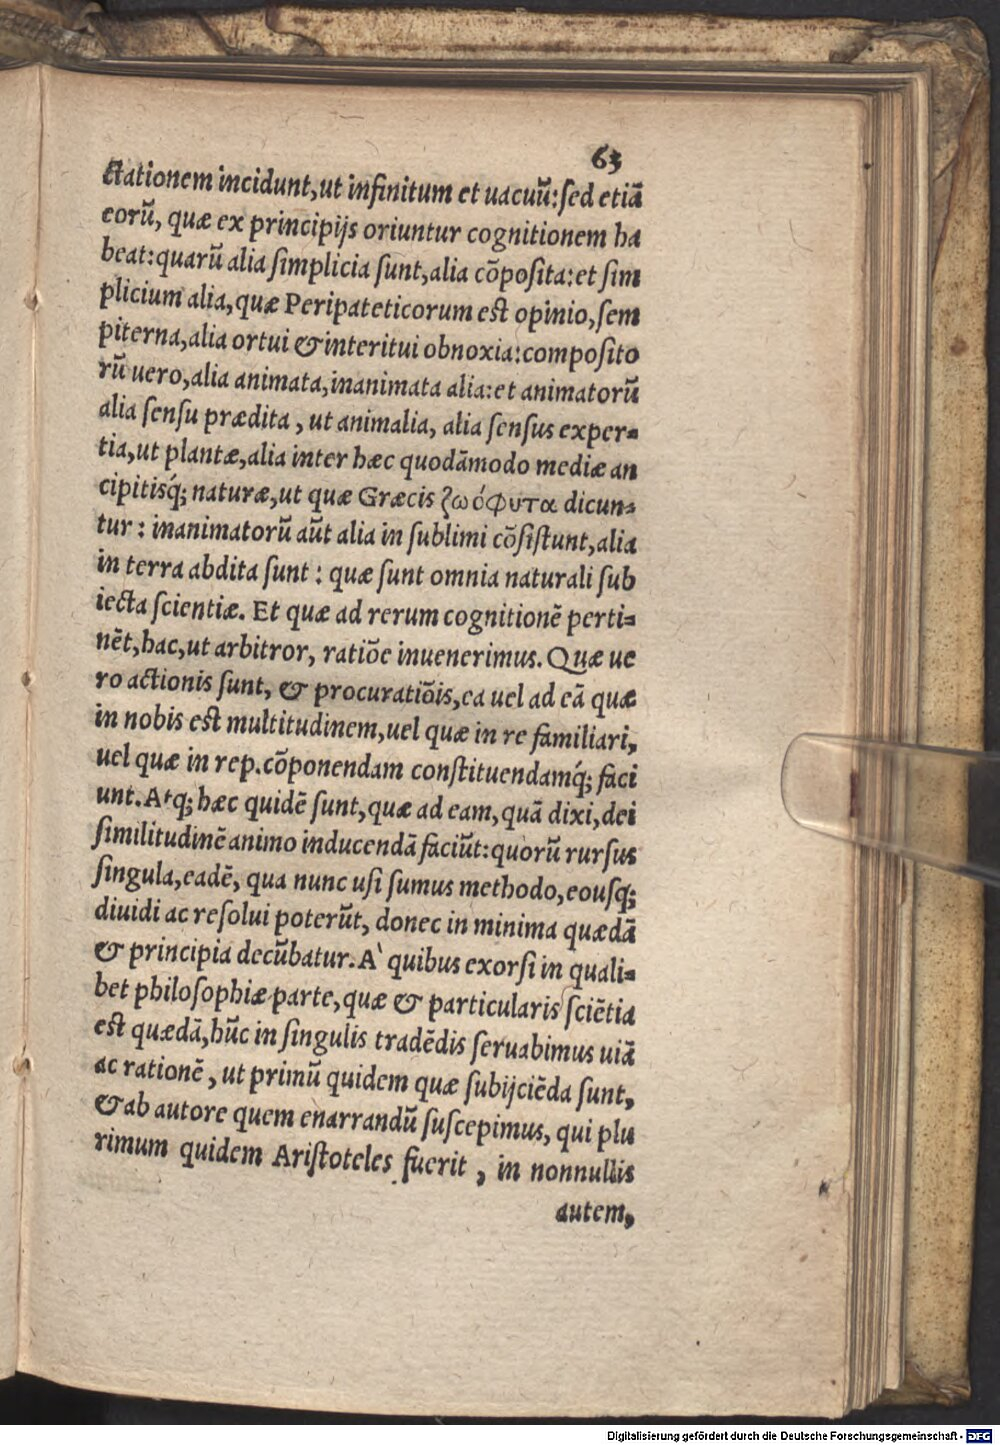 63
ctationem incidunt, ut infinitum et uacuũ: sed etiã
eorũ, quæ ex principijs oriuntur cognitionem ha
beat: quarũ alia simplicia sunt, alia cõposita: et sim
plicium alia, quæ Peripateticorum est opinio, sem
piterna, alia ortui & interitui obnoxia: composito
rũ uero, alia animata, inanimata alia: et animatorũ
alia sensu prædita, ut animalia, alia sensus exper=
tia, ut plantæ, alia inter hæc quodãmodo mediæ an
cipitisq́; naturæ, ut quæ Græcis ζωόφυτα dicun=
tur: inanimatorũ aũt alia in sublimi cõsistunt, alia
in terra abdita sunt: quæ sunt omnia naturali sub
iecta scientiæ. Et quæ ad rerum cognitionẽ perti=
nẽt, hac, ut arbitror, ratiõe inuenerimus. Quæ ue
ro actionis sunt, & procuratiõis, ea uel ad eã quæ
in nobis est multitudinem, uel quæ in re familiari,
uel quæ in rep. cõponendam constituendamq́; faci
unt. Atq; hæc quidẽ sunt, quæ ad eam, quã dixi, dei
similitudinẽ animo inducendã faciũt: quorũ rursus
singula, eadẽ, qua nunc usi sumus methodo, eousq;
diuidi ac resolui poterũt, donec in minima quædã
& principia decũbatur. A` quibus exorsi in quali=
bet philosophiæ parte, quæ & particularis sciẽtia
est quædã, hũc in singulis tradẽdis seruabimus uiã
ac rationẽ, ut primũ quidem quæ subijciẽda sunt,
& ab autore quem enarrandũ suscepimus, qui plu
rimum quidem Aristoteles fuerit, in nonnullis
autem,
Digitalisierung gefördert durch die Deutsche Forschungsgemeinschaft - DFG